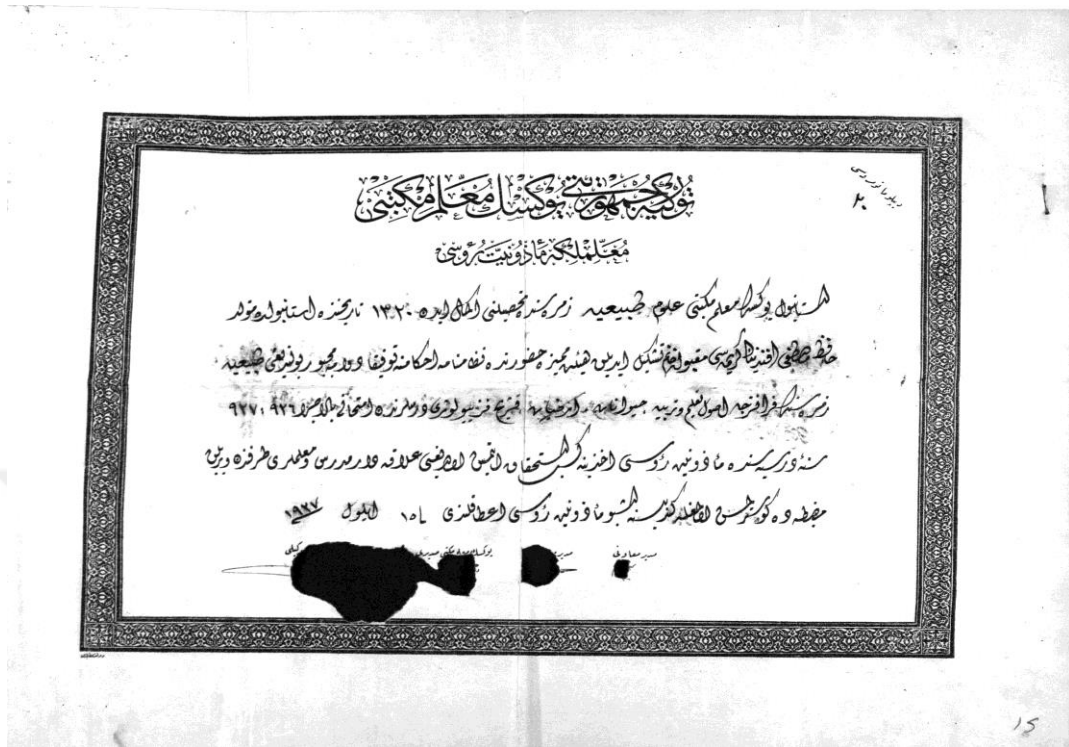 دیپلوما نومروسی
٢٠
تورکیه جمهوریتی یوکسك معلم مکتبی
معلملکه مأذونیت رؤسی
استانبول یوکسك معلم مکتبی علوم طبیعیه زمره سنده تحصیلنی اکمال ایدن ١٣٢٠ تاریخنده استانبولده متولد
حافظ مصطفی افندینك کریمه سی تشکل ایدن هیئت ممیزه حضورنده نظامنامه احکامنه توفیقاً مجبور بولندیغی طبیعیه
زمره سندن اصول تعلیم وتربیه حیوانات ارضیات فیزیولوژی درسلرنده امتحانی بالاجرا ٩٢٦ : ٩٢٧
سنهٔ درسیه سنده مأذونیت رؤسی اخذینه کسب استحقاق ایتمش اولدیغی علاقه دار مدرس ومعلملری طرفندن ویریلن
مضبطه ده کوسترلمش اولمغله کندیسنه اشبو مأذونیت رؤسی اعطا قلندی ١٥ ایلول ١٩٢٧
مدیر معاونی مدیر یوکسك معلم مکتبی مدیری وکیلی
15